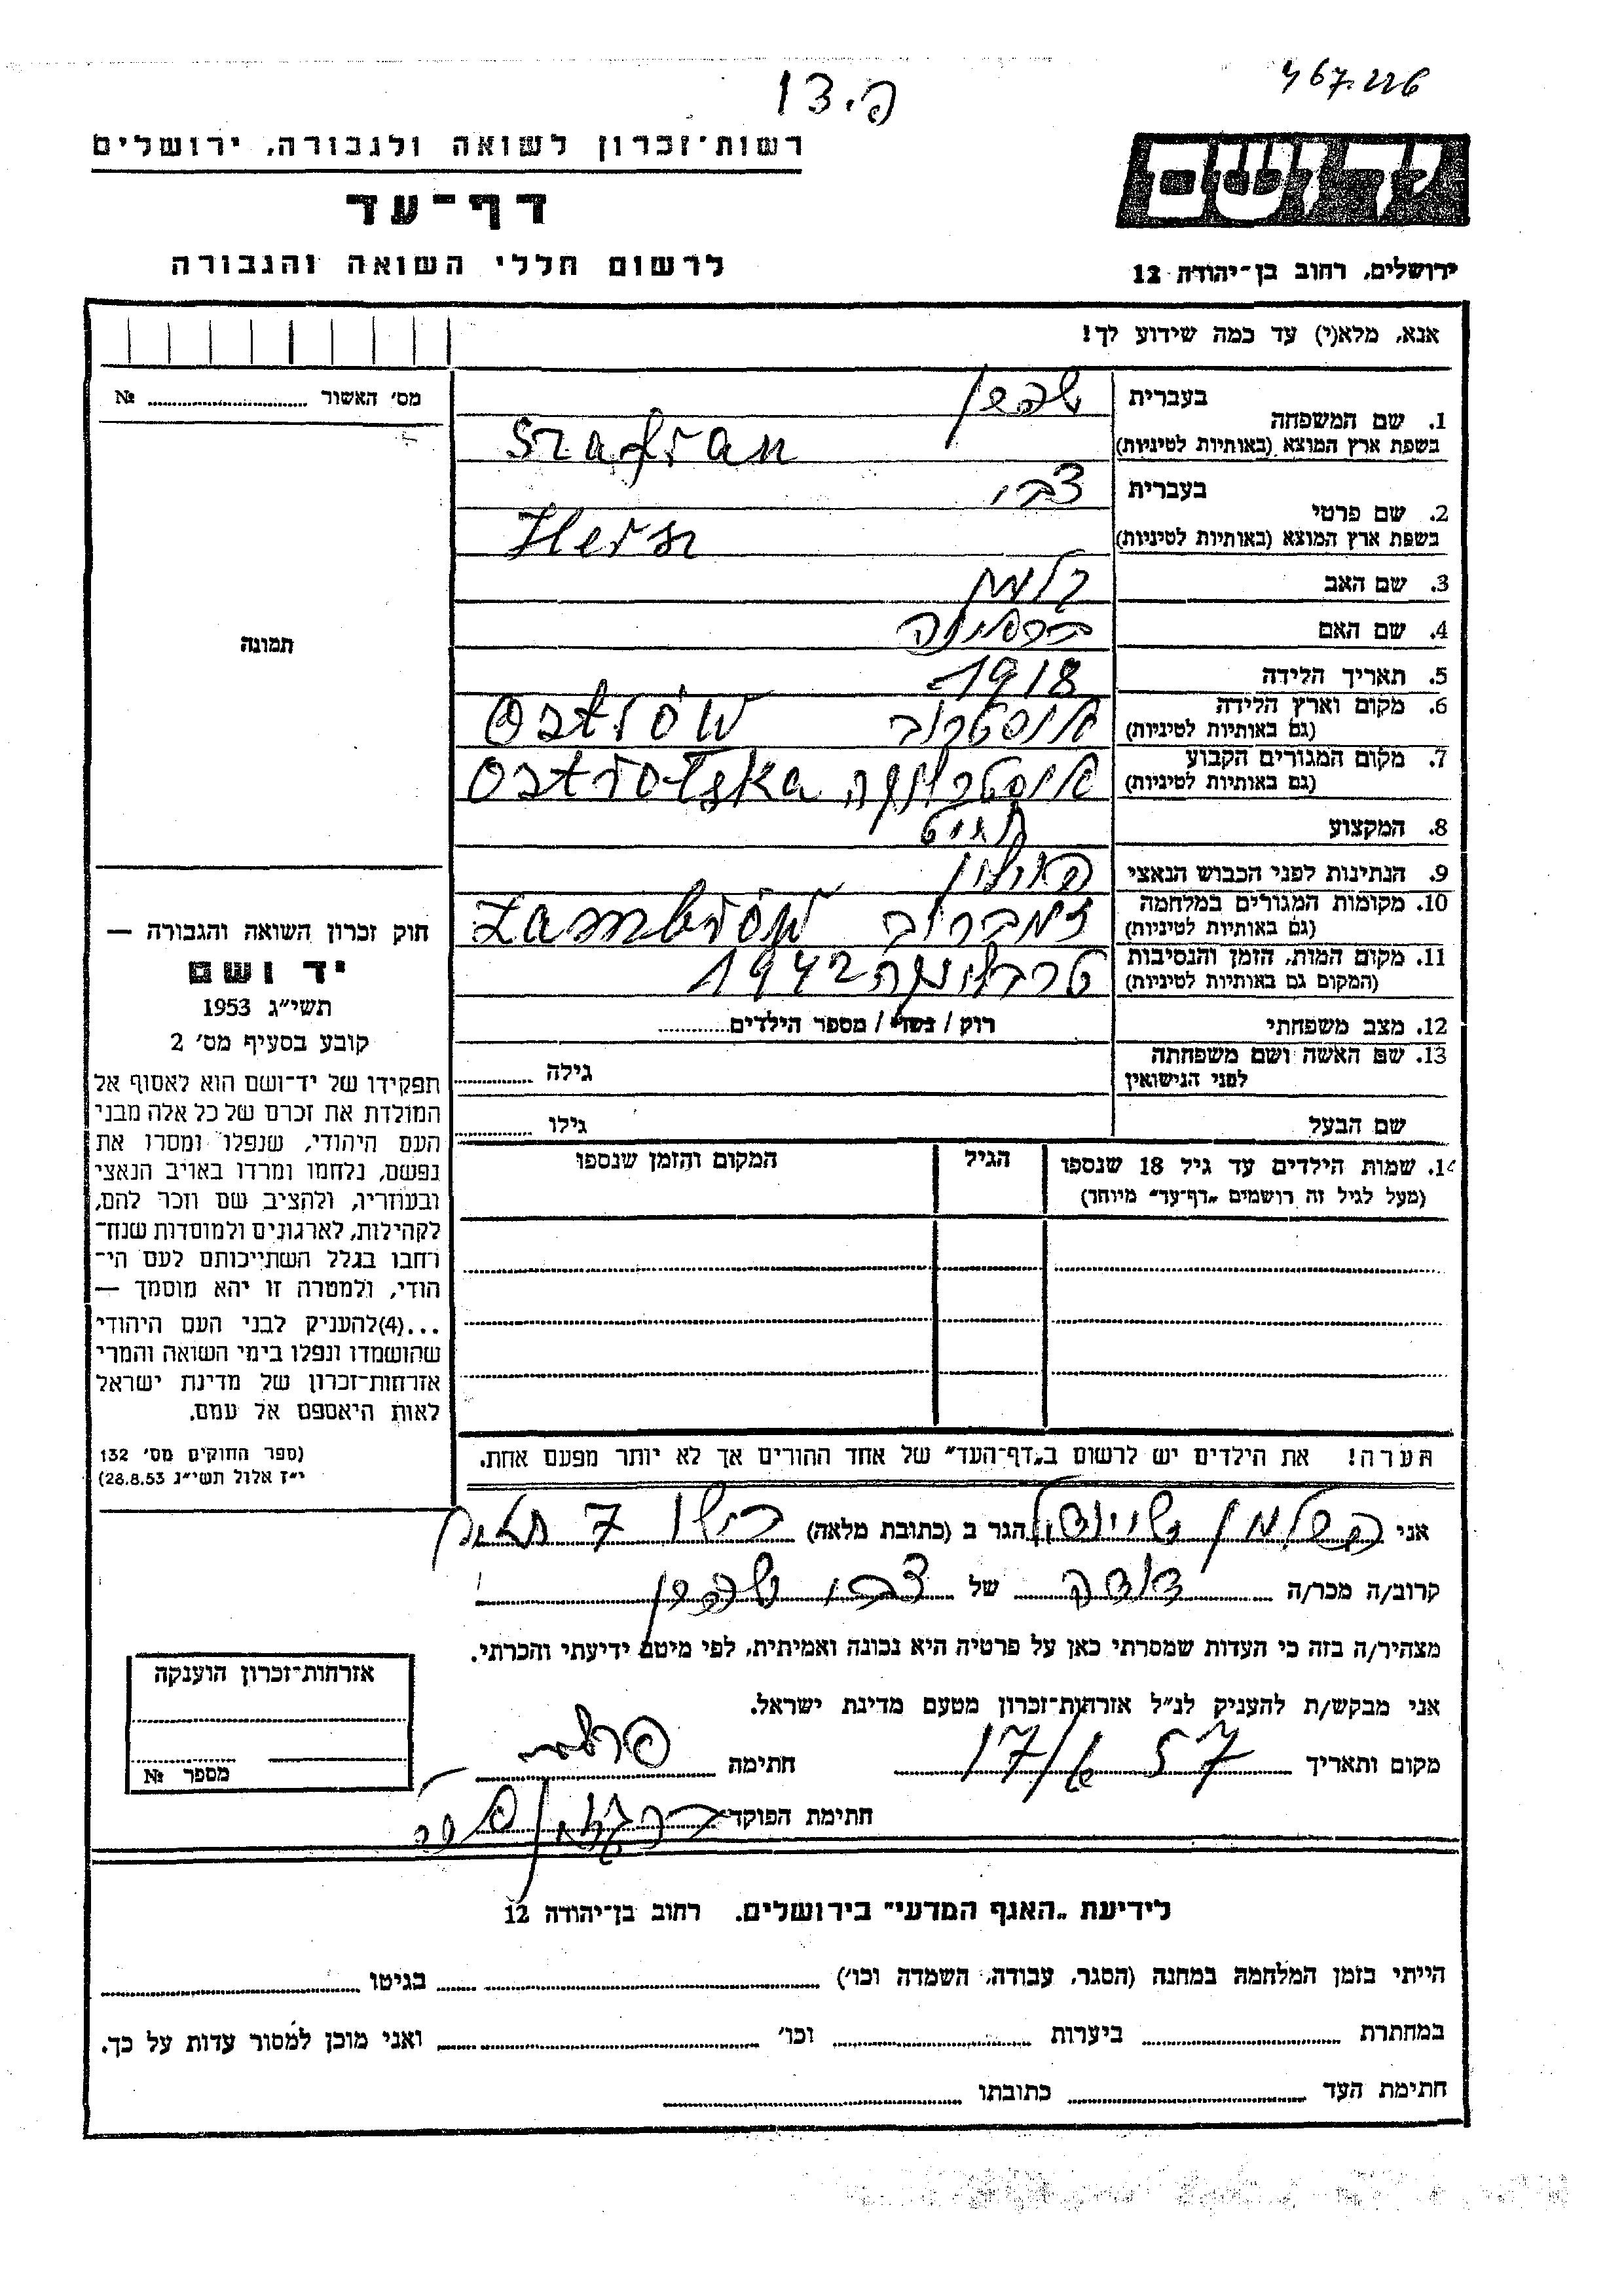 467.226
פ. 13
ידושם
רשות־זכרון לשואה ולגבורה, ירושלים
דף־עד
לרשום חללי השואה והגבורה
ירושלים, רחוב בן־יהודה 12
אנא, מלא(י) עד כמה שידוע לך!
מס׳ האשור № 
1. שם המשפחה
בעברית
שפרן
בשפת ארץ המוצא (באותיות לטיניות)
Szafran
2. שם פרטי
בעברית
צבי
בשפת ארץ המוצא (באותיות לטיניות)
Hersz
3. שם האב
קלמן
4. שם האם
5. תאריך הלידה 1918
6. מקום וארץ הלידה
(גם באותיות לטיניות)
אוסטרוב Ostrów
7. מקום המגורים הקבוע
(גם באותיות לטיניות)
Ostrołęka
8. המקצוע
חייט
9. הנתינות לפני הכבוש הנאצי
פולין
10. מקומות המגורים במלחמה
(גם באותיות לטיניות)
זמברוב Zambrów
11. מקום המות, הזמן והנסיבות
(המקום גם באותיות לטיניות)
טרבלינקה 1942
12. מצב משפחתי
רוק / נשוי / מספר הילדים
13. שם האשה ושם משפחתה
לפני הנישואין
גילה
שם הבעל גילו
14. שמות הילדים עד גיל 18 שנספו
(מעל לגיל זה רושמים „דף־עד״ מיוחד)
הגיל
המקום והזמן שנספו
הערה! את הילדים יש לרשום ב„דף־העד״ של אחד ההורים אך לא יותר מפעם אחת.
תמונה
חוק זכרון השואה והגבורה —
יד ושם
תשי״ג 1953
קובע בסעיף מס׳ 2
תפקידו של יד־ושם הוא לאסוף אל
המולדת את זכרם של כל אלה מבני
העם היהודי, שנפלו ומסרו את
נפשם, נלחמו ומרדו באויב הנאצי
ובעוזריו, ולהציב שם וזכר להם,
לקהילות, לארגונים ולמוסדות שנח־
רחבו בגלל השתייכותם לעם הי־
הודי, ולמטרה זו יהא מוסמך —
...(4)להעניק לבני העם היהודי
שהושמדו ונפלו בימי השואה והמרי
אזרחות־זכרון של מדינת ישראל
לאות היאספם אל עמם.
(ספר החוקים מס׳ 132
י״ז אלול תשי״ג 28.8.53)
אני הגר ב (כתובת מלאה) 7
קרוב/ה מכר/ה דודה של צבי שפרן
מצהיר/ה בזה כי העדות שמסרתי כאן על פרטיה היא נכונה ואמיתית, לפי מיטב ידיעתי והכרתי.
אני מבקש/ת להעניק לנ״ל אזרחות־זכרון מטעם מדינת ישראל.
מקום ותאריך 17/6 57 חתימה
חתימת הפוקד
אזרחות־זכרון הוענקה
מספר №
לידיעת „האגף המדעי״ בירושלים. רחוב בן־יהודה 12
הייתי בזמן המלחמה במחנה (הסגר, עבודה, השמדה וכו׳) בגיטו
במחתרת ביערות וכו׳ ואני מוכן למסור עדות על כך.
חתימת העד כתובתו